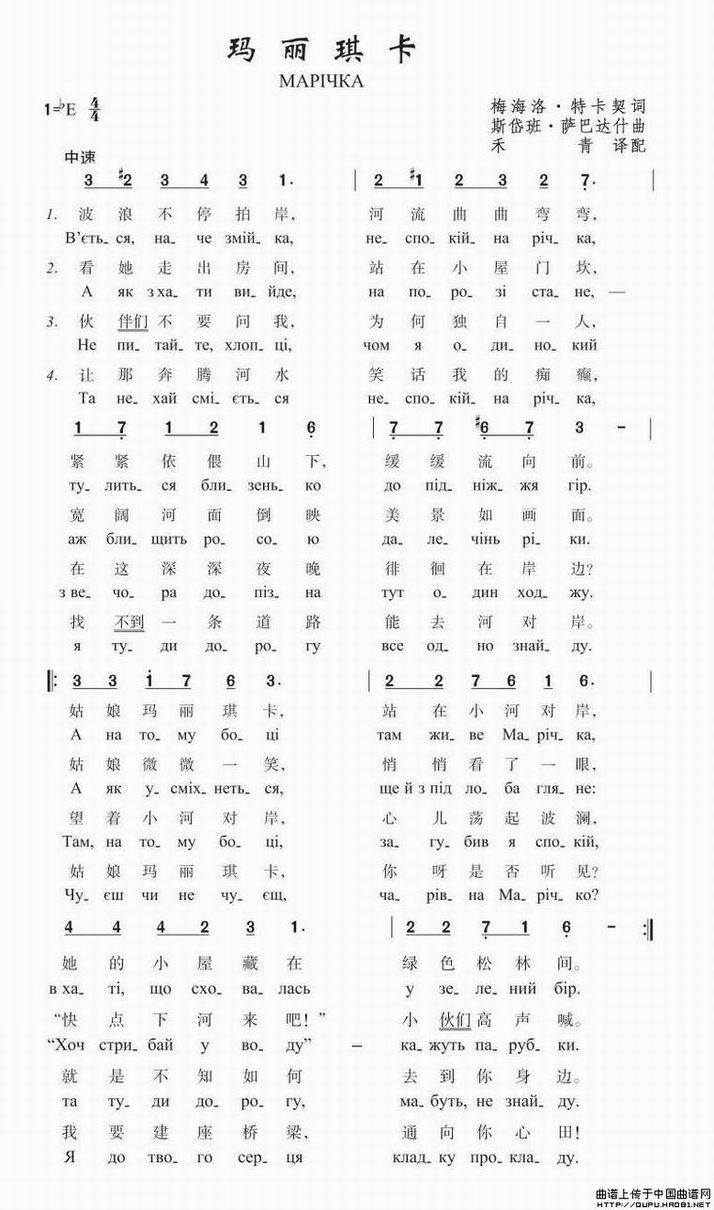 玛丽琪卡
МАРІЧКА
1=♭E 4/4
梅海洛·特卡契词
斯岱班·萨巴达什曲
禾 青 译配
中速
3 #2 3 4 3 1. | 2 #1 2 3 2 7. |
1. 波 浪 不 停 拍 岸, 河 流 曲 曲 弯 弯,
В'єть- ся, на- че змій- ка, не- спо- кій- на річ- ка,
2. 看 她 走 出 房 间, 站 在 小 屋 门 坎,
А як з ха- ти ви- йде, на по- ро- зі ста- не, —
3. 伙 伴们 不 要 问 我, 为 何 独 自 一 人,
Не пи- тай- те, хлоп- ці, чом я о- ди- но- кий
4. 让 那 奔 腾 河 水 笑 话 我 的 痴 癫,
Та не- хай смі- єть- ся не- спо- кій- на річ- ка,
1 7 1 2 1 6 | 7 7 #6 7 3 – |
紧 紧 依 偎 山 下, 缓 缓 流 向 前。
ту- лить- ся бли- зень- ко до під- ніж- жя гір.
宽 阔 河 面 倒 映 美 景 如 画 面。
аж бли- щить ро- со- ю да- ле- чінь рі- ки.
在 这 深 深 夜 晚 徘 徊 在 岸 边?
з ве- чо- ра до- піз- на тут о- дин ход- жу.
找 不到 一 条 道 路 能 去 河 对 岸。
я ту- ди до- ро- гу все од- но знай- ду.
‖: 3 3 1 7 6 3. | 2 2 7 6 1 6. |
姑 娘 玛 丽 琪 卡, 站 在 小 河 对 岸,
А на то- му бо- ці там жи- ве Ма- річ- ка,
姑 娘 微 微 一 笑, 悄 悄 看 了 一 眼,
А як у- сміх- неть- ся, ще й з під ло- ба гля- не:
望 着 小 河 对 岸, 心 儿 荡 起 波 澜,
Там, на то- му бо- ці, за- гу- бив я спо- кій,
姑 娘 玛 丽 琪 卡, 你 呀 是 否 听 见?
Чу- єш чи не чу- єщ, ча- рів- на Ма- річ- ко?
4 4 4 2 3 1. | 2 2 7 1 6 – :‖
她 的 小 屋 藏 在 绿 色 松 林 间。
в ха- ті, що схо- ва- лась у зе- ле- ний бір.
“快 点 下 河 来 吧!” 小 伙们 高 声 喊。
“Хоч стри- бай у во- ду” – ка- жуть па- руб- ки.
就 是 不 知 如 何 去 到 你 身 边。
та ту- ди до- ро- гу, ма- буть, не знай- ду.
我 要 建 座 桥 梁, 通 向 你 心 田!
Я до тво- го сер- ця клад- ку про- кла- ду.
曲谱上传于中国曲谱网
HTTP://QUPU.HAO81.NET